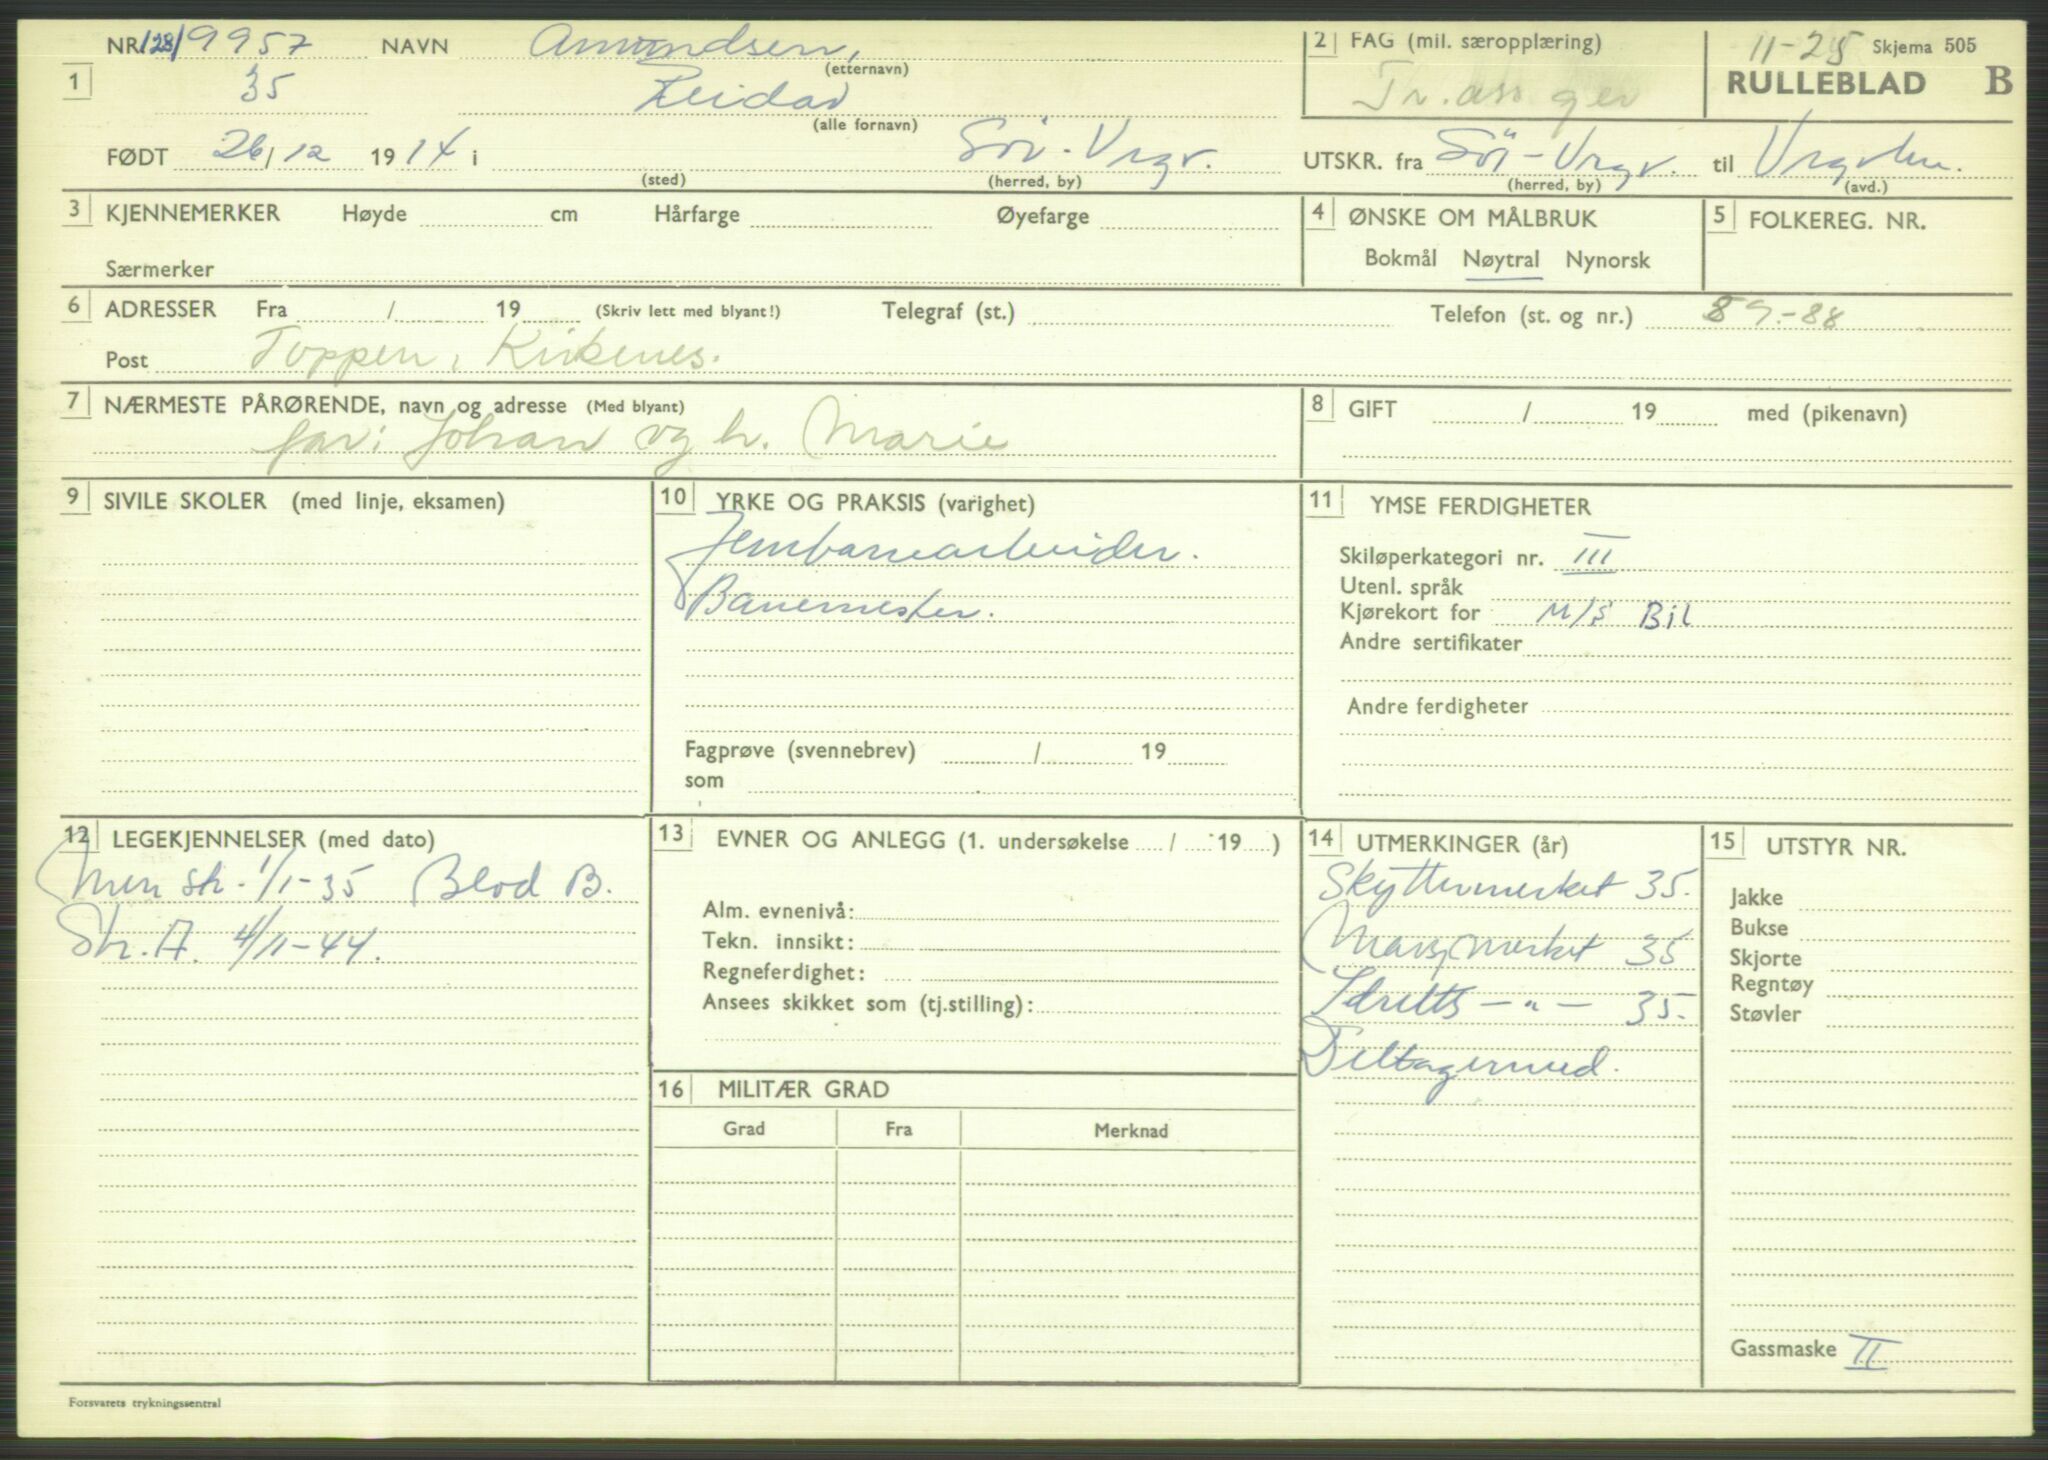 NR 128/9957 NAVN Amundsen,
(etternavn)
1 35 Reidar
(alle fornavn)
FØDT 26/12 1914 i Sör-Vrgr.
(sted) (herred, by)
2 FAG (mil. særopplæring)
Tr.ass ger
11-25 Skjema 505
RULLEBLAD B
UTSKR. fra Sör-Vrgr. til
(herred, by) (avd.)
3 KJENNEMERKER Høyde cm Hårfarge Øyefarge
Særmerker
4 ØNSKE OM MÅLBRUK
Bokmål Nøytral Nynorsk
5 FOLKEREG. NR.
6 ADRESSER Fra / 19 (Skriv lett med blyant!) Telegraf (st.) Telefon (st. og nr.) 89.-88
Post Toppen, Kirkenes.
7 NÆRMESTE PÅRØRENDE, navn og adresse (Med blyant)
far: Johan og h. Marie
8 GIFT / 19 med (pikenavn)
9 SIVILE SKOLER (med linje, eksamen)
10 YRKE OG PRAKSIS (varighet)
Jernbanearbeider.
Banemester.
Fagprøve (svennebrev) / 19
som
11 YMSE FERDIGHETER
Skiløperkategori nr. III
Utenl. språk
Kjørekort for M/S Bil
Andre sertifikater
Andre ferdigheter
12 LEGEKJENNELSER (med dato)
Min str. 1/1-35 Blod B.
Str. A. 4/11-44.
13 EVNER OG ANLEGG (1. undersøkelse / 19 )
Alm. evnenivå:
Tekn. innsikt:
Regneferdighet:
Ansees skikket som (tj.stilling):
16 MILITÆR GRAD
Grad Fra Merknad
14 UTMERKINGER (år)
Skyttermerket 35.
Marsjmerket 35
Idretts -"- 35.
Deltagermed.
15 UTSTYR NR.
Jakke
Bukse
Skjorte
Regntøy
Støvler
Gassmaske II
Forsvarets trykningssentral